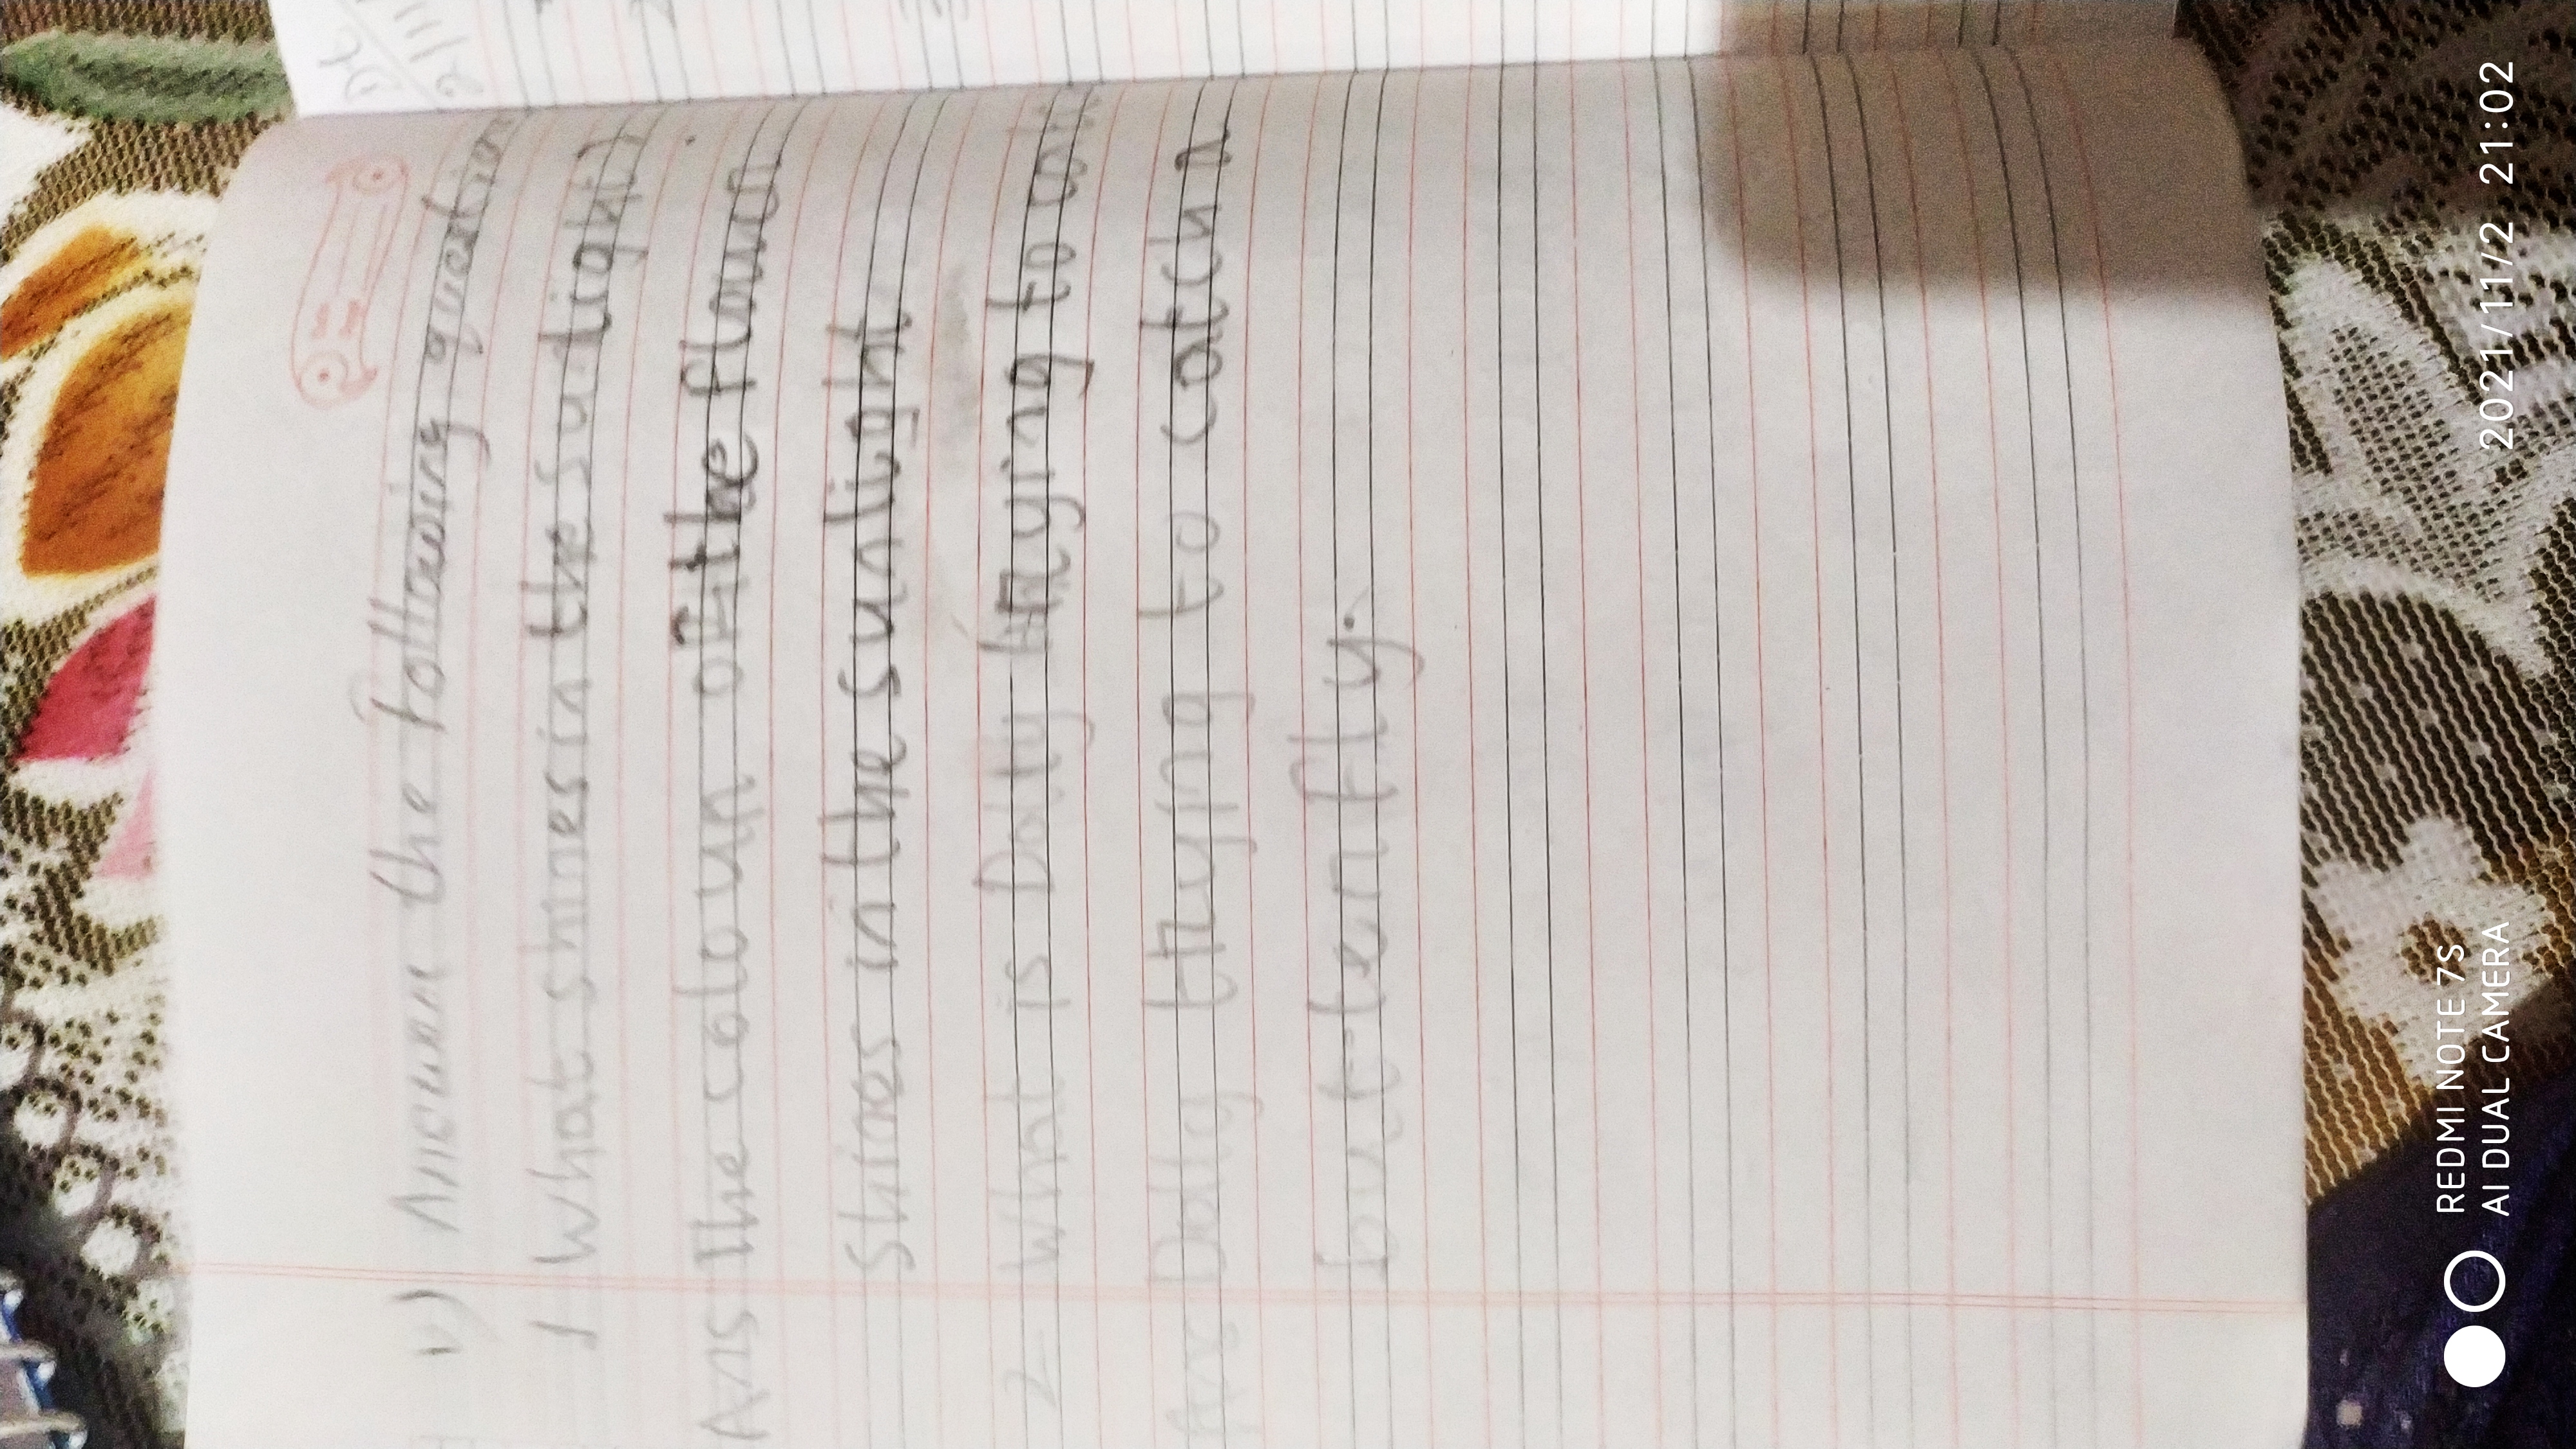 v) Answer the following question
1 What shines in the sudlight)
Ans The colour of the flower
Shines in the sunlight
2 What is Dolly trying to
Ans Dolly trying to catch a
butterfly.
2021/11/2 21:02
REDMI NOTE 7S
AI DUAL CAMERA